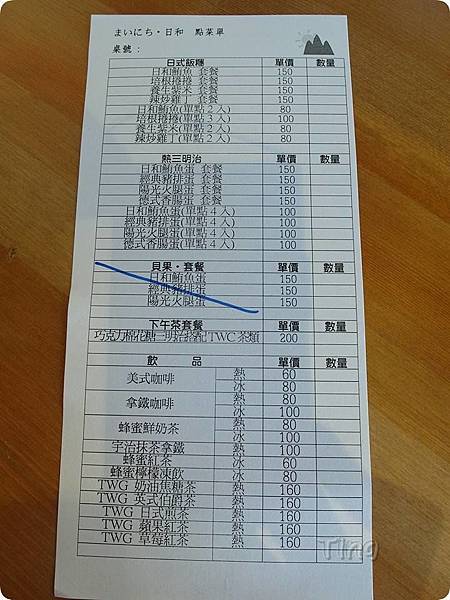 まいにち・日和 點菜單
桌號：
日式飯糰 單價 數量
日和鮪魚 套餐 150
培根捲捲 套餐 150
養生紫米 套餐 150
辣炒雞丁 套餐 150
日和鮪魚(單點２入) 80
培根捲捲(單點３入) 100
養生紫米(單點２入) 80
辣炒雞丁(單點２入) 80
熱三明治 單價 數量
日和鮪魚蛋 套餐 150
經典豬排蛋 套餐 150
陽光火腿蛋 套餐 150
德式香腸蛋 套餐 150
日和鮪魚蛋(單點４入) 100
經典豬排蛋(單點４入) 100
陽光火腿蛋(單點４入) 100
德式香腸蛋(單點４入) 100
貝果・套餐 單價 數量
日和鮪魚蛋 150
經典豬排蛋 150
陽光火腿蛋 150
下午茶套餐 單價 數量
巧克力棉花糖三明治搭配TWG茶類 200
飲 品 單價 數量
美式咖啡 熱 60
冰 80
拿鐵咖啡 熱 80
冰 100
蜂蜜鮮奶茶 熱 80
冰 100
宇治抹茶拿鐵 熱 100
蜂蜜紅茶 冰 60
蜂蜜檸檬凍飲 冰 80
TWG 奶油焦糖茶 熱 160
TWG 英式伯爵茶 熱 160
TWG 日式煎茶 熱 160
TWG 蘋果紅茶 熱 160
TWG 草莓紅茶 熱 160
Ting